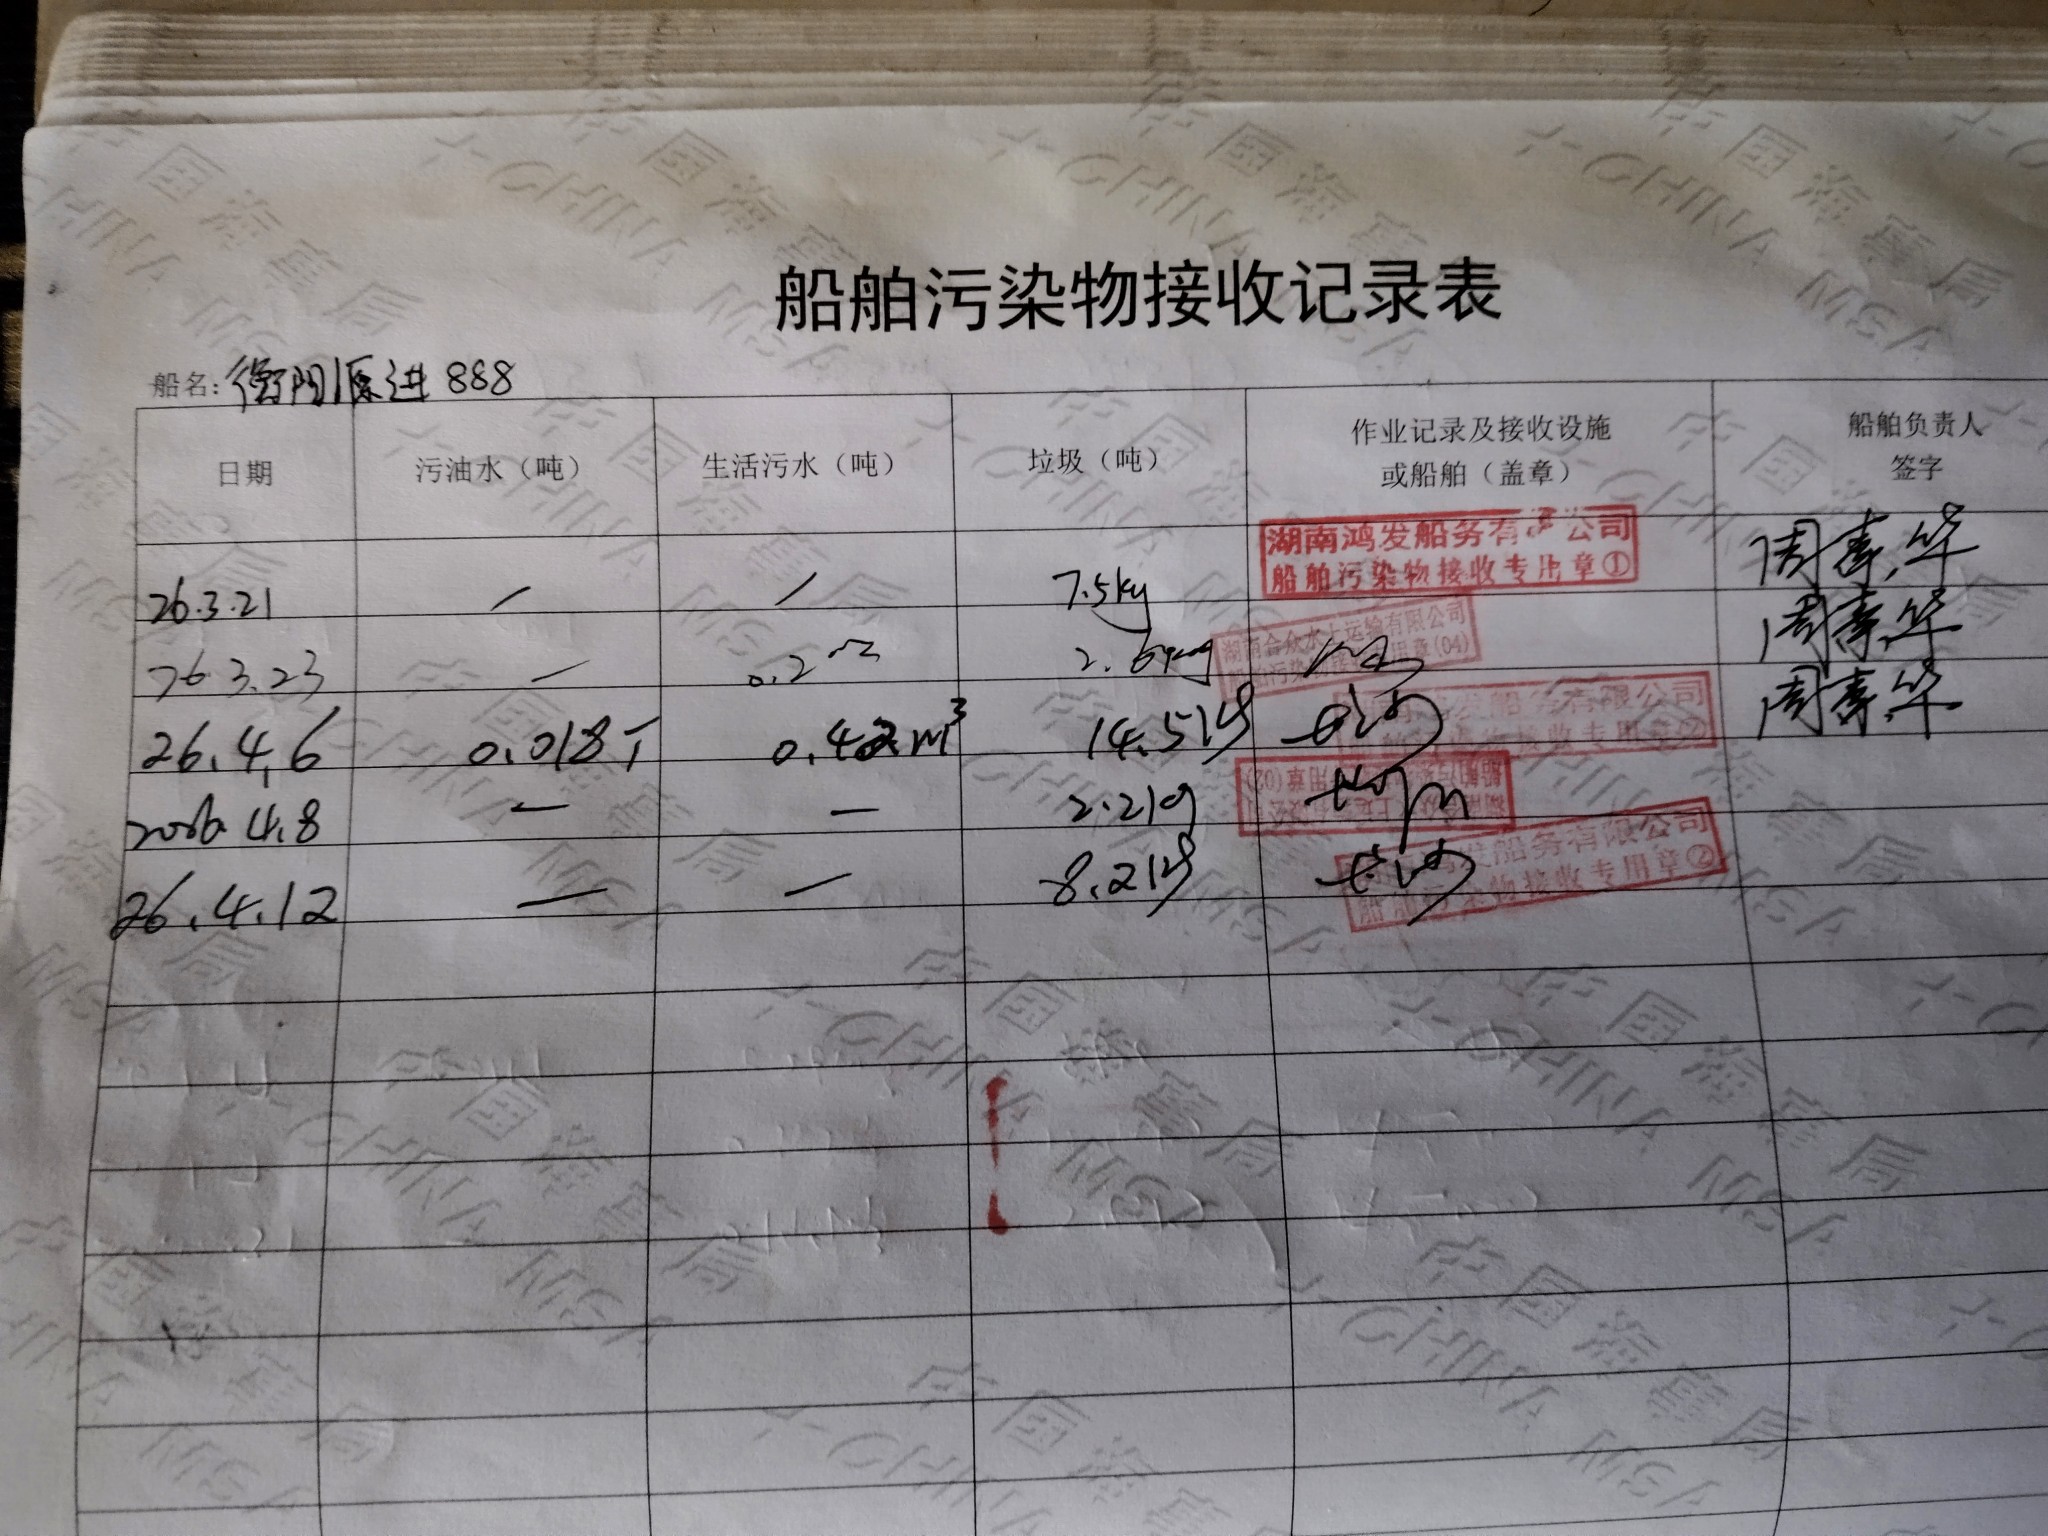 船舶污染物接收记录表
船名: 衡阳源进 888
日期 污油水（吨） 生活污水（吨） 垃圾（吨） 作业记录及接收设施或船舶（盖章） 船舶负责人签字
湖南鸿发船务有 公司
船舶污染物接收专用章①
26.3.21 / / 7.5kg 周春华
湖南合众水上运输有限公司
船舶污染物接收专用章(04)
26.3.23 — 0.2 2.6kg 周春华
发船务有限公司
接收专用章②
26.4.6 0.018T 0.42m³ 14.5kg 长沙 周春华
用章(02)
2026.4.8 — — 2.2kg
发船务有限公司
船舶污染物接收专用章②
26.4.12 — — 8.2kg 长沙
中国海事局
CHINA MSA